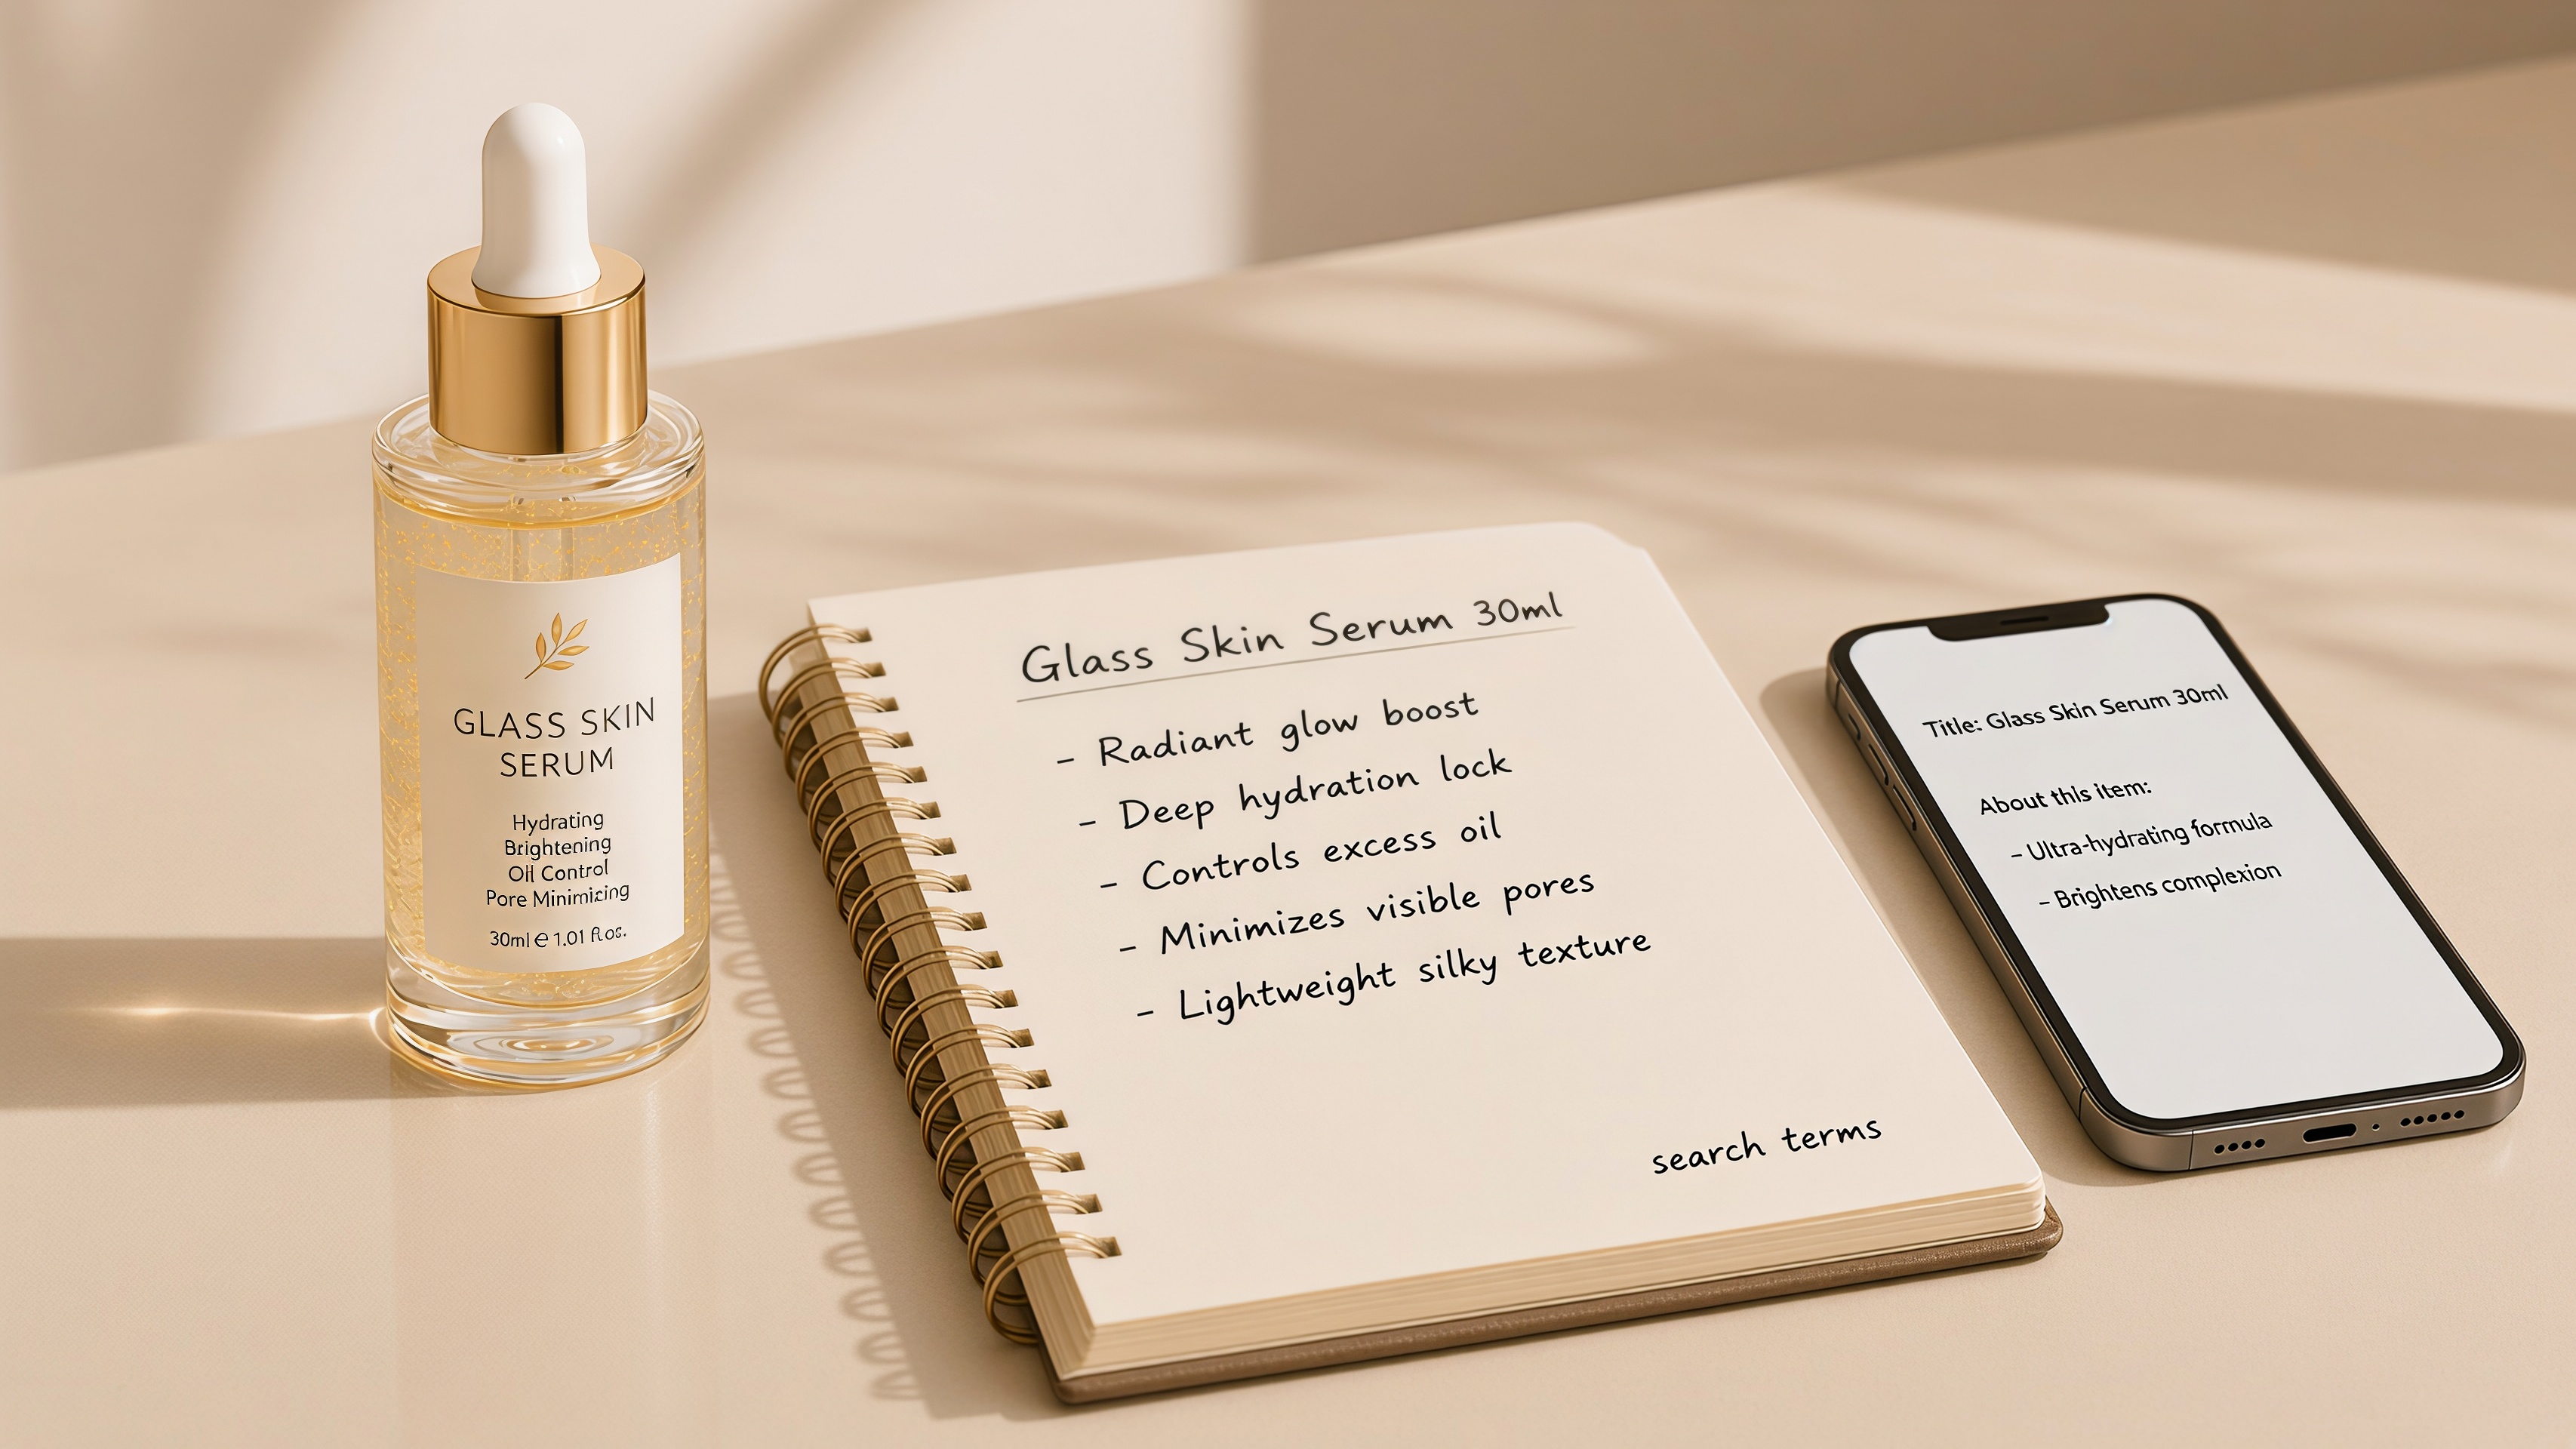 GLASS SKIN
SERUM
Hydrating
Brightening
Oil Control
Pore Minimizing
30ml e 1.01 fl oz.
Glass Skin Serum 30ml
- Radiant glow boost
- Deep hydration lock
- Controls excess oil
- Minimizes visible pores
- Lightweight silky texture
search terms
Title: Glass Skin Serum 30ml
About this item:
- Ultra-hydrating formula
- Brightens complexion